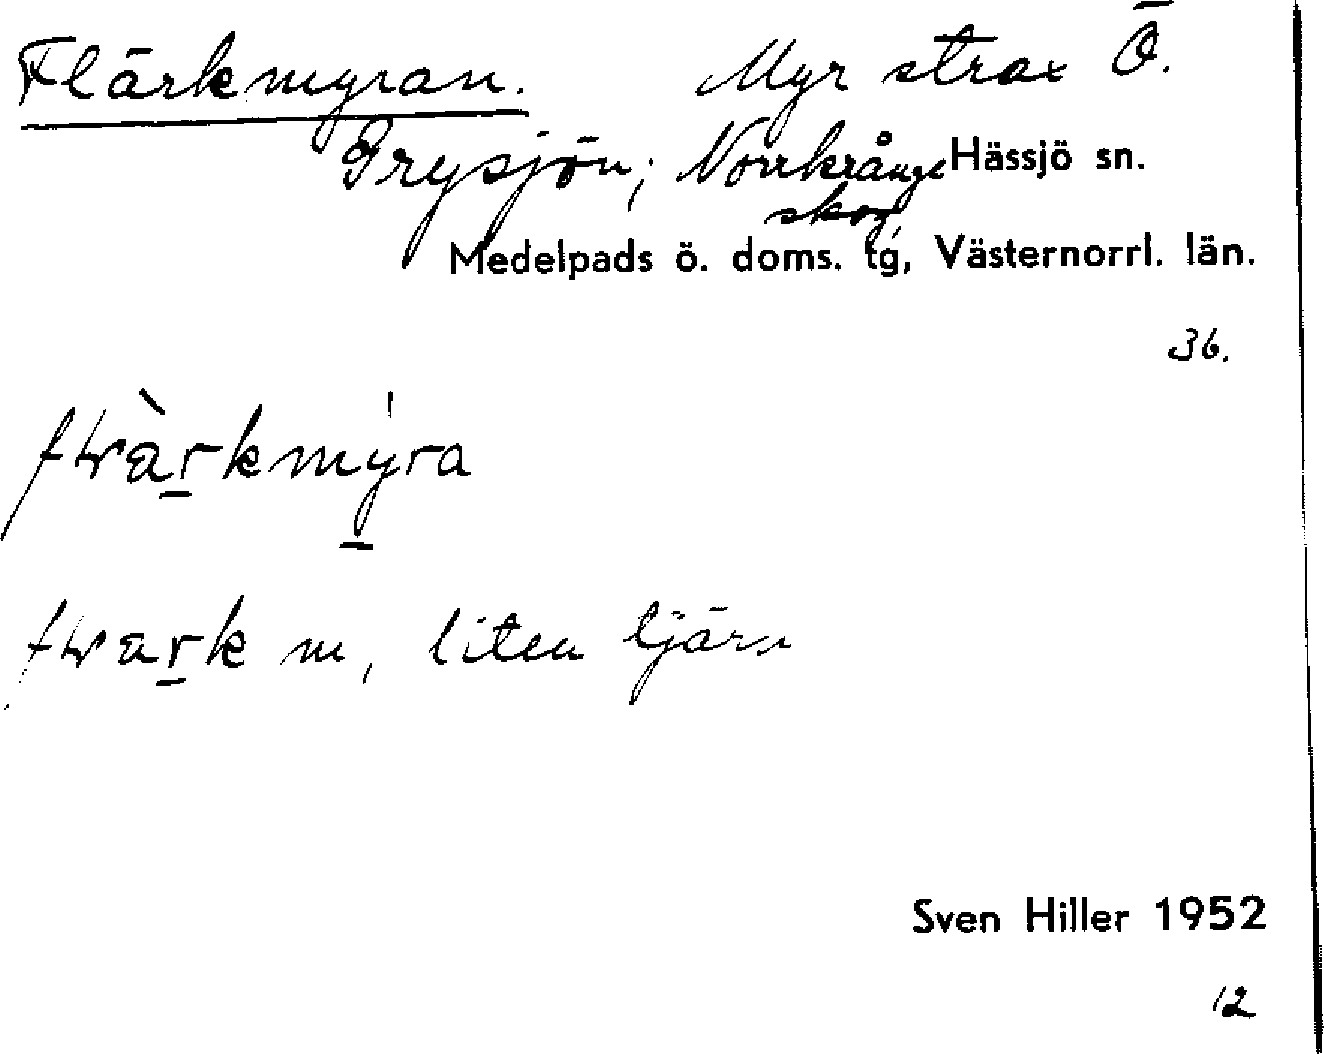 Flärkmyran. Myr strax Ö.
Grysjön; Norrkrånge Hässjö sn.
skog,
Medelpads ö. doms. tg, Västernorrl. län.
36.
m, liten tjärn
Sven Hiller 1952
12